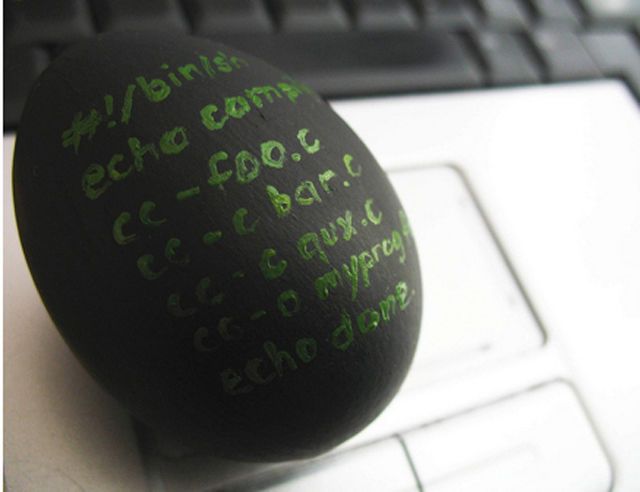 #!/bin/sh
echo compi
cc -foo.c
cc -c bar.c
cc -c qux.c
cc -o myprog
echo done.